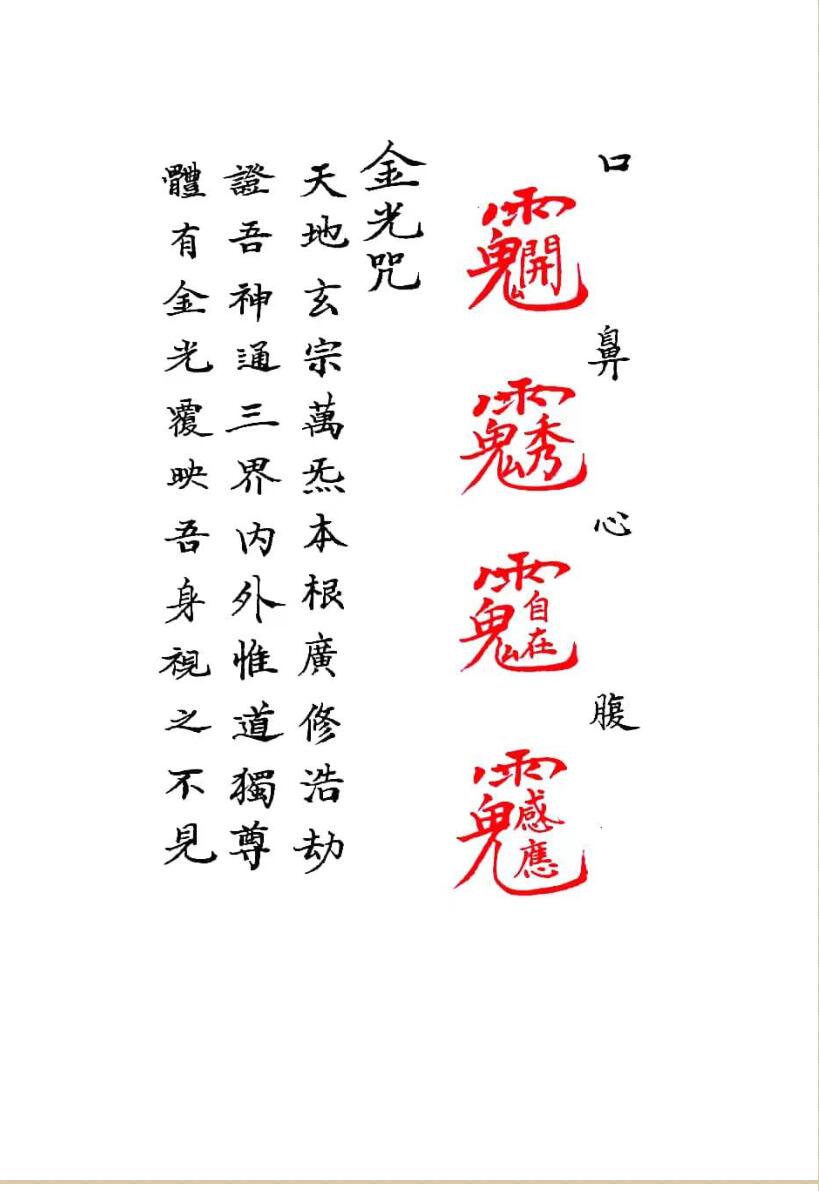 口
鼻
心
腹
開
秀
自在
感應
金光咒
天地玄宗萬炁本根廣修浩劫
證吾神通三界內外惟道獨尊
體有金光覆映吾身視之不見